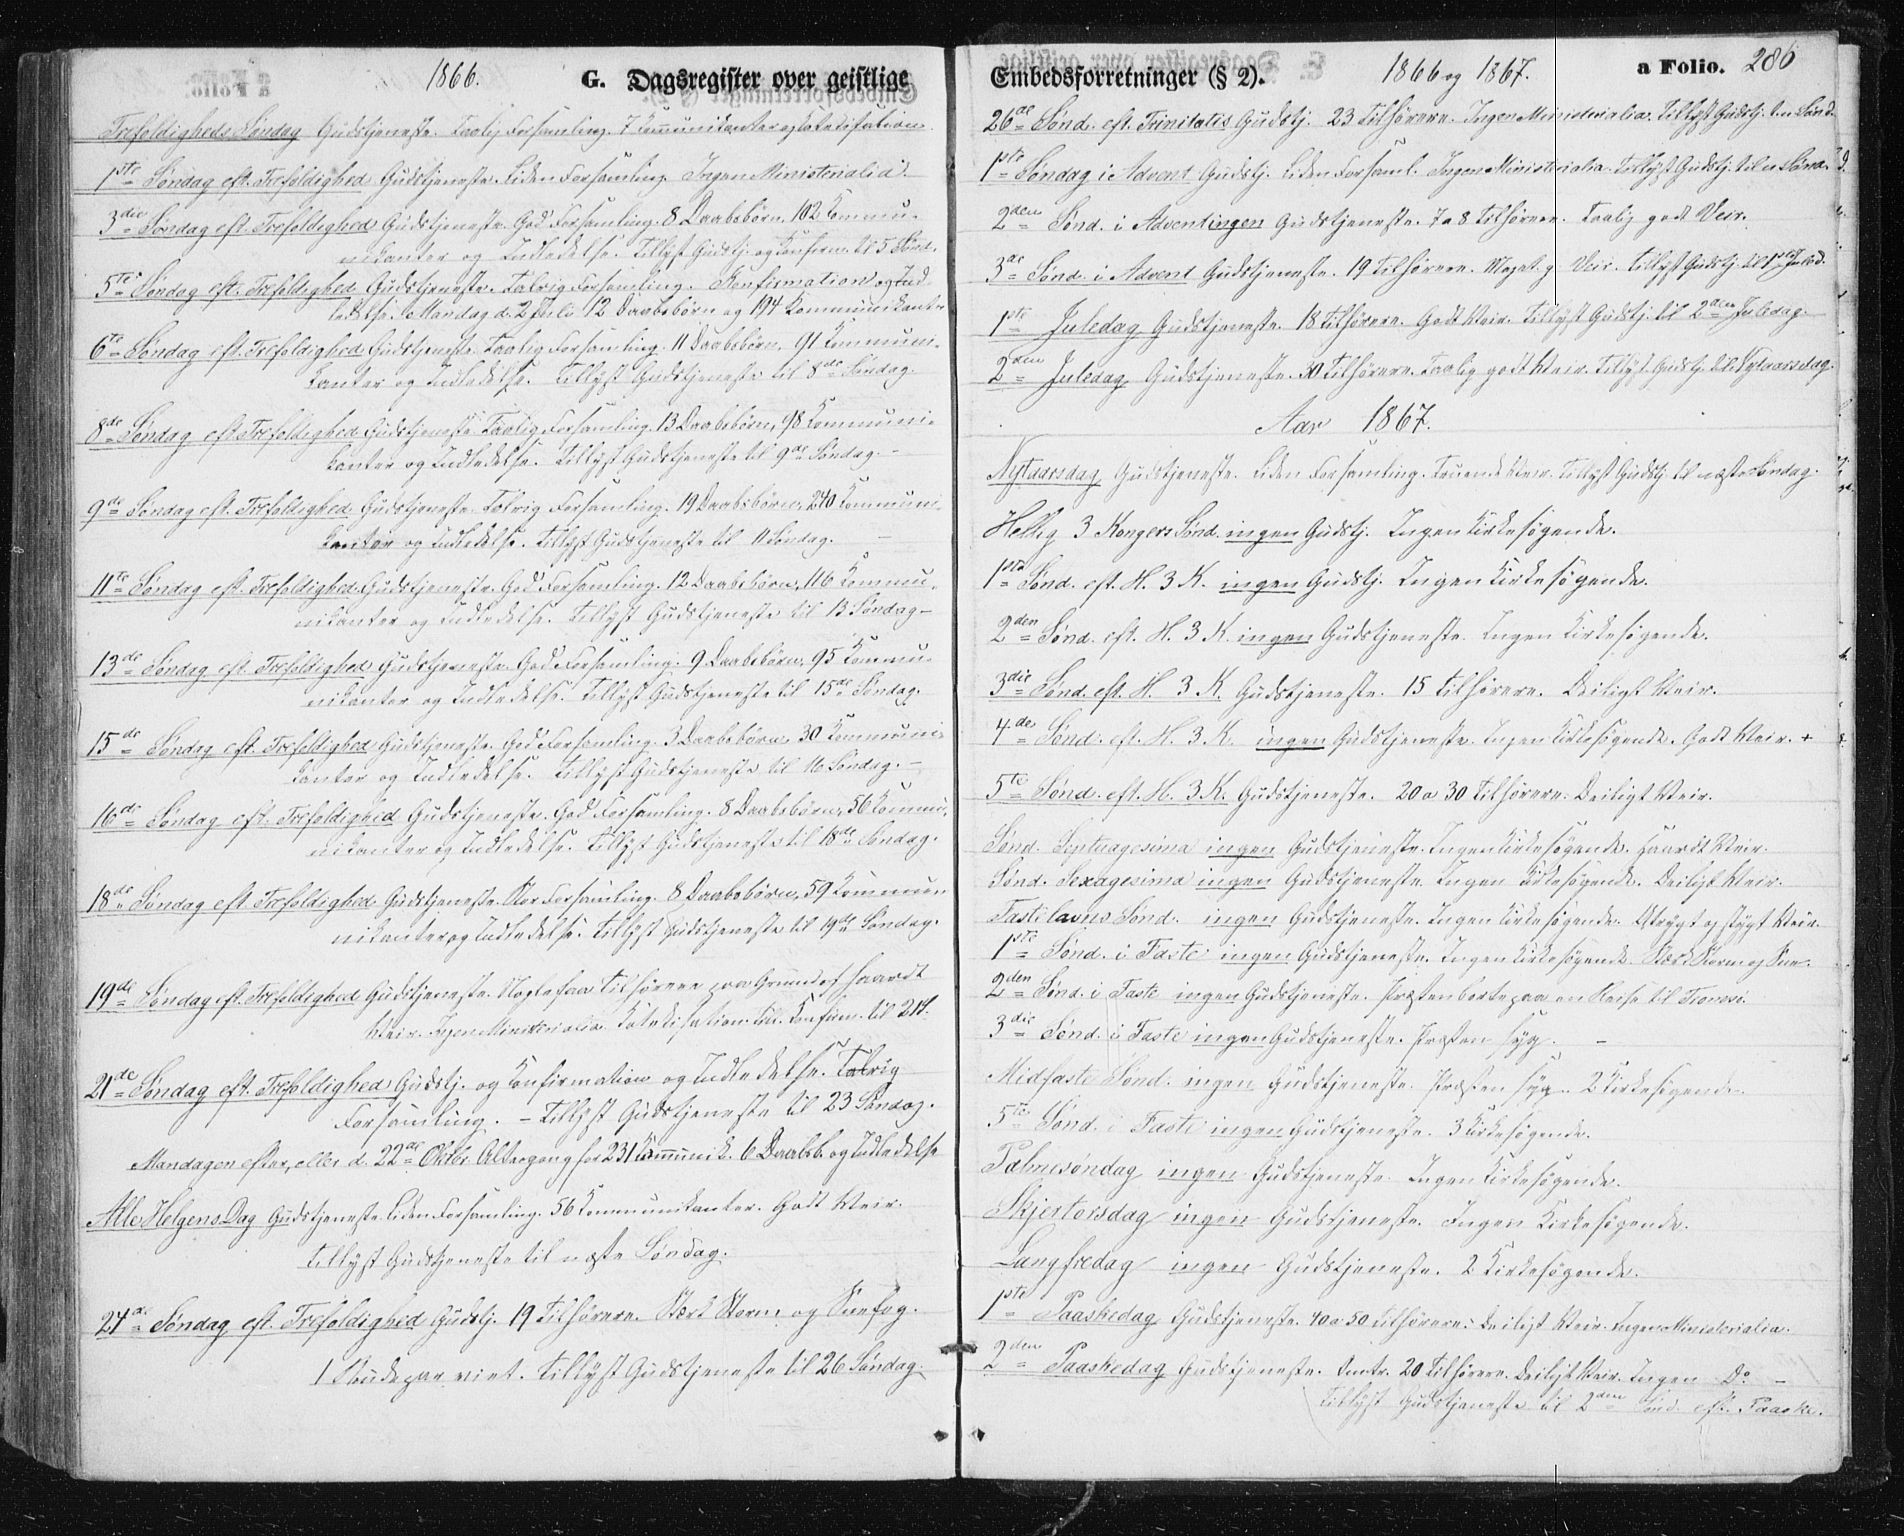 1866.
G. Dagsregister over geistlige
Trefoldigheds Søndag Gudstjeneste. Taalig Forsamling. 7 Kommunikanter og Katekisation.
1ste Søndag eft. Trefoldighed Gudstjeneste. Liden Forsamling. Ingen Ministerialia.
3die Søndag eft. Trefoldighed Gudstjeneste. God Forsamling. 8 Daabsbörn. 102 Kommu-
nikanter og Indledelse. Tillyst Gudstj. og Konfirm. til 5 Sönd.
5te Søndag eft. Trefoldighed Gudstjeneste. Talrig Forsamling. Konfirmation og Ind-
ledelse. Mandag d. 2 Juli 12 Daabsbörn og 194 Kommunikanter
6te Søndag eft. Trefoldighed Gudstjeneste. Taalig Forsamling. 11 Daabsbörn. 91 Kommuni-
kanter og Indledelse. Tillyst Gudstjeneste til 8de Söndag.
8de Søndag eft. Trefoldighed Gudstjeneste. Taalig Forsamling. 13 Daabsbörn, 98 Kommuni-
kanter og Indledelse. Tillyst Gudstjeneste til 9de Söndag. -
9de Søndag eft. Trefoldighed Gudstjeneste. Talrig Forsamling. 19 Daabsbörn, 240 Kommuni-
kanter og Indledelse. Tillyst Gudstjeneste til 11 Söndag. -
11te Søndag eft. Trefoldighed Gudstjeneste. God Forsamling. 12 Daabsbörn, 116 Kommu-
nikanter og Indledelse. Tillyst Gudstjeneste til 13 Söndag -
13de Søndag eft. Trefoldighed Gudstjeneste. God Forsamling. 9 Daabsbörn, 95 Kommu-
nikanter og Indledelse. Tillyst Gudstjeneste til 15de Söndag.
15de Søndag eft. Trefoldighed Gudstjeneste. God Forsamling. 3 Daabsbörn, 30 Kommuni-
kanter og Indledelse. Tillyst Gudstjeneste til 16 Söndag. -
16de Søndag eft. Trefoldighed Gudstjeneste. God Forsamling. 8 Daabsbörn, 56 Kommu-
nikanter og Indledelse. Tillyst Gudstjeneste til 18de Söndag.
18de Søndag eft. Trefoldighed Gudstjeneste. Stor Forsamling. 8 Daabsbörn, 59 Kommu-
nikanter og Indledelse. Tillyst Gudstjeneste til 19de Söndag.
19de Søndag eft. Trefoldighed Gudstjeneste. Nogle faa Tilhörere paa Grund af haardt
Veir. Ingen Ministerialia. Katekisation. Konfirm. til 21d.
21de Søndag eft. Trefoldighed Gudstj. og Konfirmation og Indledelse. Talrig
Forsamling. - Tillyst Gudstjeneste til 23 Söndag.
Mandagen efter, eller d. 22de Oktbr. Altergang for 231 Kommunik. 6 Daabsb. og Indledelse
Alle Helgens Dag Gudstjeneste. Liden Forsamling. 56 Kommunikanter. Godt Veir.
Tillyst Gudstjeneste til næste Söndag.
24de Søndag eft. Trefoldighed Gudstj. 19 Tilhörere. Stærk Storm og Snefog.
1 Brudepar viet. Tillyst Gudstjeneste til 26 Söndag.
Embedsforretninger (§ 2).
1866 og 1867.
a Folio. 286
26de Sønd. eft. Trinitatis Gudstj. 23 Tilhörere. Ingen Ministerialia. Tillyst Gudstj. Sönd.
1ste Søndag i Advent Gudstj. Liden Forsaml. Ingen Ministerialia. Tillyst Gudstj. til n. Sönd.
2den Sønd. i Adventingen Gudstjeneste. 7 a 8 Tilhörere. Taalig godt Veir.
3de Sønd. i Advent Gudstjeneste. 19 Tilhörere. Maat. g. Veir. Tillyst Gudstj. til 1ste Juled.
1ste Juledag Gudstjeneste. 18 Tilhörere. Godt Veir. Tillyst Gudstj. til 2den Juledag.
2den Juledag Gudstjeneste. 30 Tilhörere. Taalig godt Veir. Tillyst Gudstj. til Nytaarsdag.
Aar 1867.
Nytaarsdag Gudstjeneste. Liden Forsamling. Truende Veir. Tillyst Gudstj. til næste Söndag.
Hellig 3 Kongers Sønd. ingen Gudstj. Ingen Kirkesøgende.
1ste Sønd. eft. H. 3 K. ingen Gudstj. Ingen Kirkesøgende.
2den Sønd. eft. H. 3 K. ingen Gudstjeneste. Ingen Kirkesøgende.
3die Sønd. eft. H. 3 K. Gudstjeneste. 15 Tilhörere. Deiligt Veir.
4de Sønd. eft. H. 3 K. ingen Gudstjeneste. Ingen Kirkesøgende. Godt Veir. +
5te Sønd. eft. H. 3 K. Gudstjeneste. 20 a 30 Tilhörere. Deiligt Veir.
Sønd. Septuagesima ingen Gudstjeneste. Ingen Kirkesøgende. Haardt Veir.
Sønd. Sexagesima ingen Gudstjeneste. Ingen Kirkesøgende. Deiligt Veir.
Fastelavns Sønd. ingen Gudstjeneste. Ingen Kirkesøgende. Utrygt og stygt Veir.
1ste Sønd. i Faste ingen Gudstjeneste. Ingen Kirkesøgende. Stærk Storm og Sne.
2den Sønd. i Faste ingen Gudstjeneste. Præsten borte paa en Reise til Tromsø.
3die Sønd. i Faste ingen Gudstjeneste. Præsten syg. -
Midfaste Sønd. ingen Gudstjeneste. Præsten syg. 2 Kirkesøgende.
5te Sønd. i Faste ingen Gudstjeneste. 3 Kirkesøgende.
Palmesøndag ingen Gudstjeneste. Ingen Kirkesøgende.
Skjertorsdag ingen Gudstjeneste. Ingen Kirkesøgende.
Langfredag ingen Gudstjeneste. 2 Kirkesøgende.
1ste Paaskedag Gudstjeneste. 40 a 50 Tilhörere. Deiligt Veir. Ingen Ministerialia.
2den Paaskedag Gudstjeneste. Omtr. 20 Tilhörere. Deiligt Veir. Ingen Do. -
Tillyst Gudstjeneste til 2den Sönd. eft. Paaske.